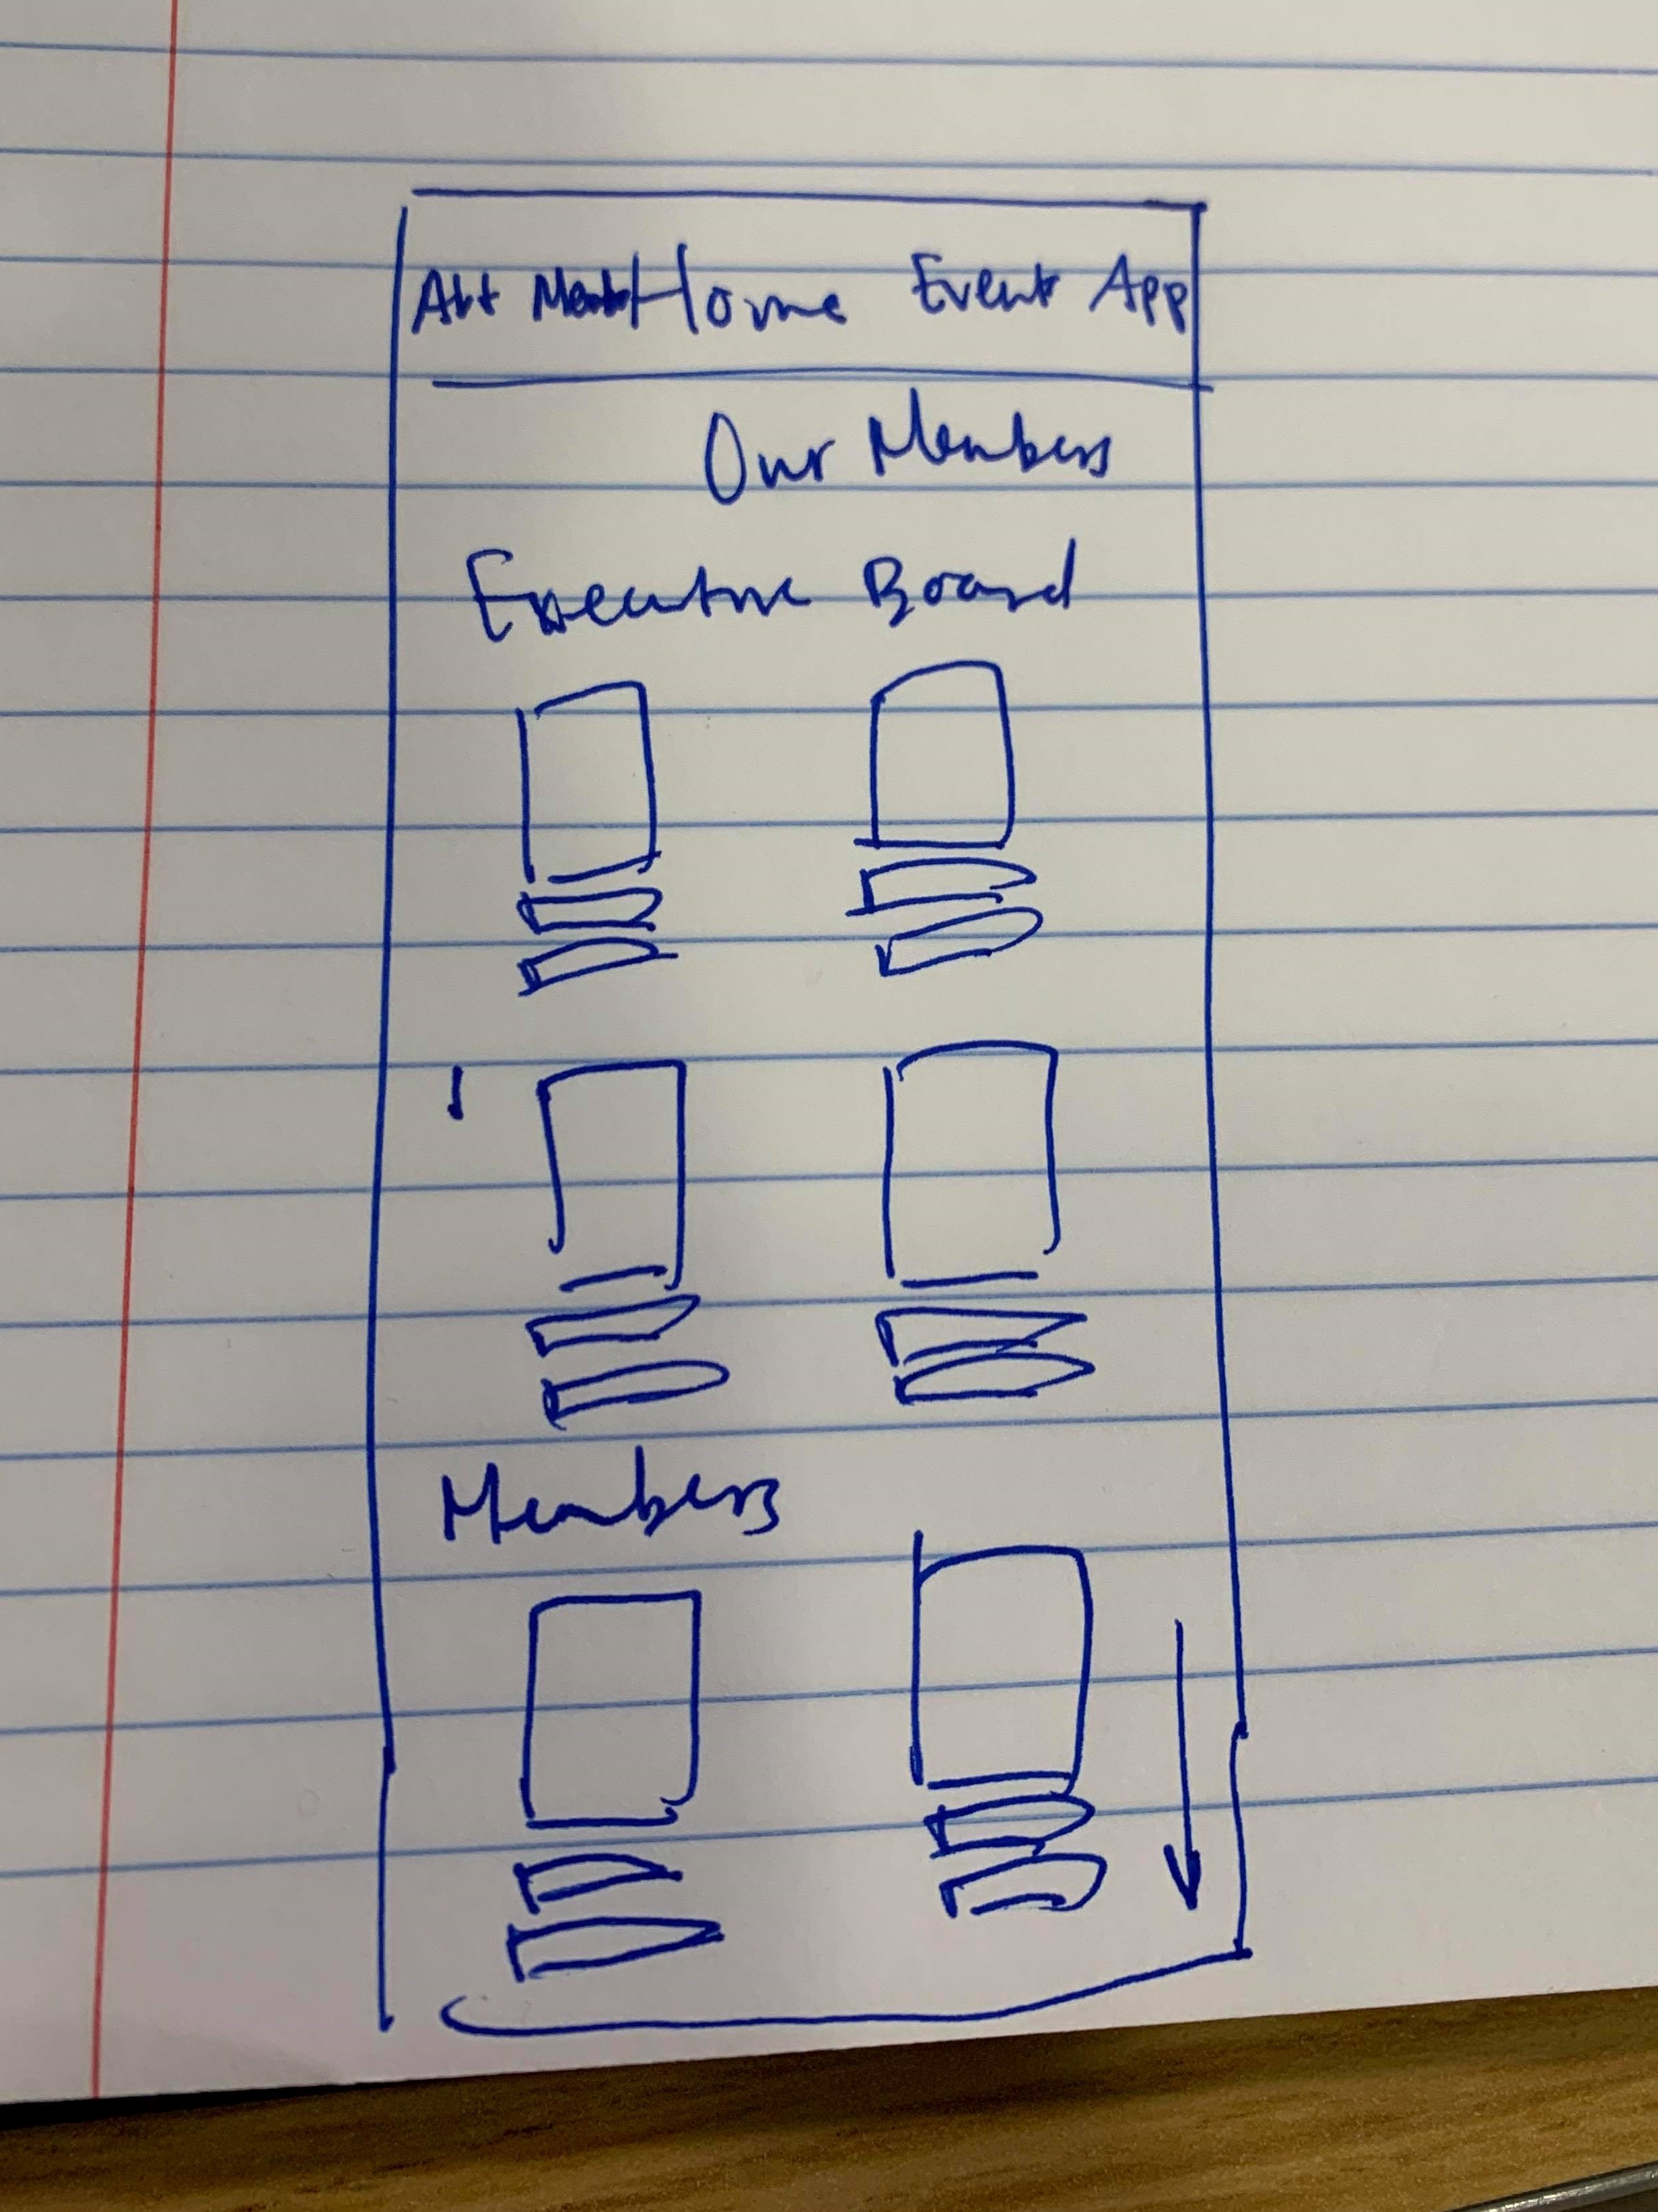 Abt Memb Home Events App
Our Members
Executive Board
Members